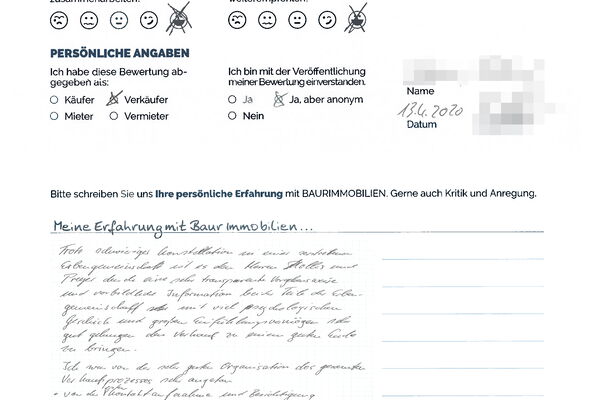 zusammenarbeiten. weiterempfehlen.
PERSÖNLICHE ANGABEN
Ich habe diese Bewertung ab-
gegeben als:
Käufer Verkäufer
Mieter Vermieter
Ich bin mit der Veröffentlichung
meiner Bewertung einverstanden.
Ja Ja, aber anonym
Nein
Name
13.4.2020
Datum
Bitte schreiben Sie uns Ihre persönliche Erfahrung mit BAURIMMOBILIEN. Gerne auch Kritik und Anregung.
Meine Erfahrung mit Baur Immobilien...
Trotz schwieriger Konstellation in einer
Erbengemeinschaft ist es den Herren und
durch eine sehr transparente Vorgehensweise
und vorbildliche Information beider Teile der Erben-
gemeinschaft mit viel psychologischen
Geschick und großem Einfühlungsvermögen sehr
gut gelungen den Verkauf zu einem guten Ende
zu bringen.
Ich war von der sehr guten Organisation des gesamten
Verkaufsprozesses sehr angetan
• von der Kontaktaufnahme und Besichtigung